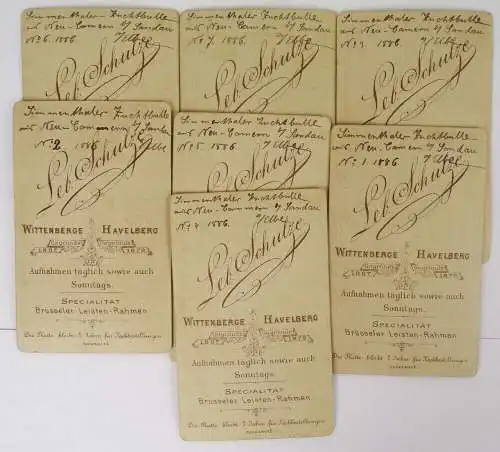 Simmenthaler Zuchtbulle
aus Neu-Camern b/ Sandau
No 6. 1886. a/Elbe
Leb. Schulze
Simmenthaler Zuchtbulle
aus Neu-Camern b/ Sandau
No 7. 1886. a/Elbe
Leb. Schulze
Simmenthaler Zuchtbulle
aus Neu-Camern b/ Sandau
No 3. 1886. a/Elbe
Leb. Schulze
Simmenthaler Zuchtbulle
aus Neu-Camern b/ Sandau
No 2. 1886. a/Elbe
Leb. Schulze
WITTENBERGE HAVELBERG
Gegründet Gegründet
1867. 1878.
Aufnahmen täglich sowie auch
Sonntags.
SPECIALITÄT
Brüsseler Leisten-Rahmen
Die Platte bleibt 3 Jahre für Nachbestellungen
reservirt.
Simmenthaler Zuchtbulle
aus Neu-Camern b/ Sandau
No 5. 1886. a/Elbe
Leb. Schulze
Simmenthaler Zuchtbulle
aus Neu-Camern b/ Sandau
No 1. 1886. a/Elbe
Leb. Schulze
WITTENBERGE HAVELBERG
Gegründet Gegründet
1867. 1878.
Aufnahmen täglich sowie auch
Sonntags.
SPECIALITÄT
Brüsseler Leisten-Rahmen
Die Platte bleibt 3 Jahre für Nachbestellungen
reservirt.
Simmenthaler Zuchtbulle
aus Neu-Camern b/ Sandau
No 4. 1886. a/Elbe
Leb. Schulze
WITTENBERGE HAVELBERG
Gegründet Gegründet
1867. 1878.
Aufnahmen täglich sowie auch
Sonntags.
SPECIALITÄT
Brüsseler Leisten-Rahmen
Die Platte bleibt 3 Jahre für Nachbestellungen
reservirt.